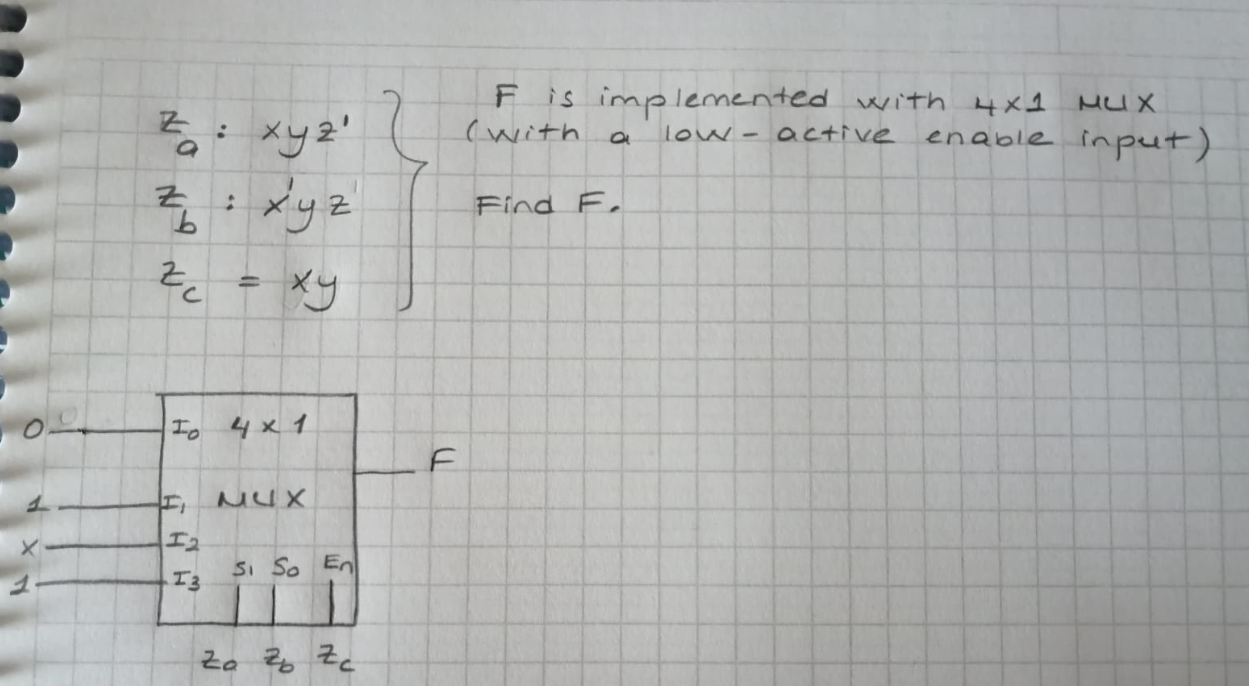 Za : xyz'
Zb : x'yz
Zc = xy
F is implemented with 4x1 MUX
(with a low-active enable input)
Find F.
0 I0 4x1
F
1 I1 MUX
x I2
1 I3 S1 S0 En
Za Zb Zc